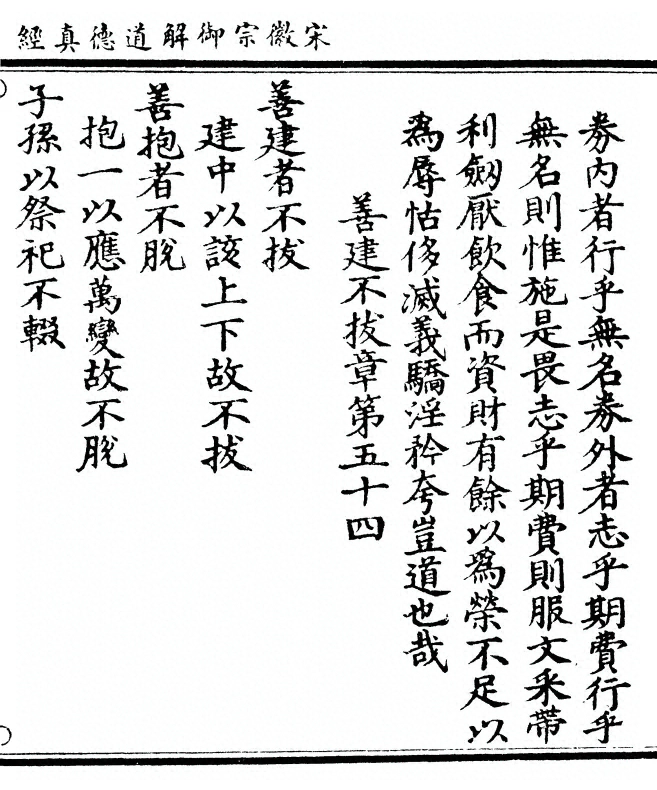 宋徽宗御解道德真經
券內者行乎無名券外者志乎期費行乎
無名則惟施是畏志乎期費則服文采帶
利劒厭飲食而資財有餘以為榮不足以
為辱怙侈滅義驕淫矜夸豈道也哉
善建不拔章第五十四
善建者不拔
建中以該上下故不拔
善抱者不脫
抱一以應萬變故不脫
子孫以祭祀不輟